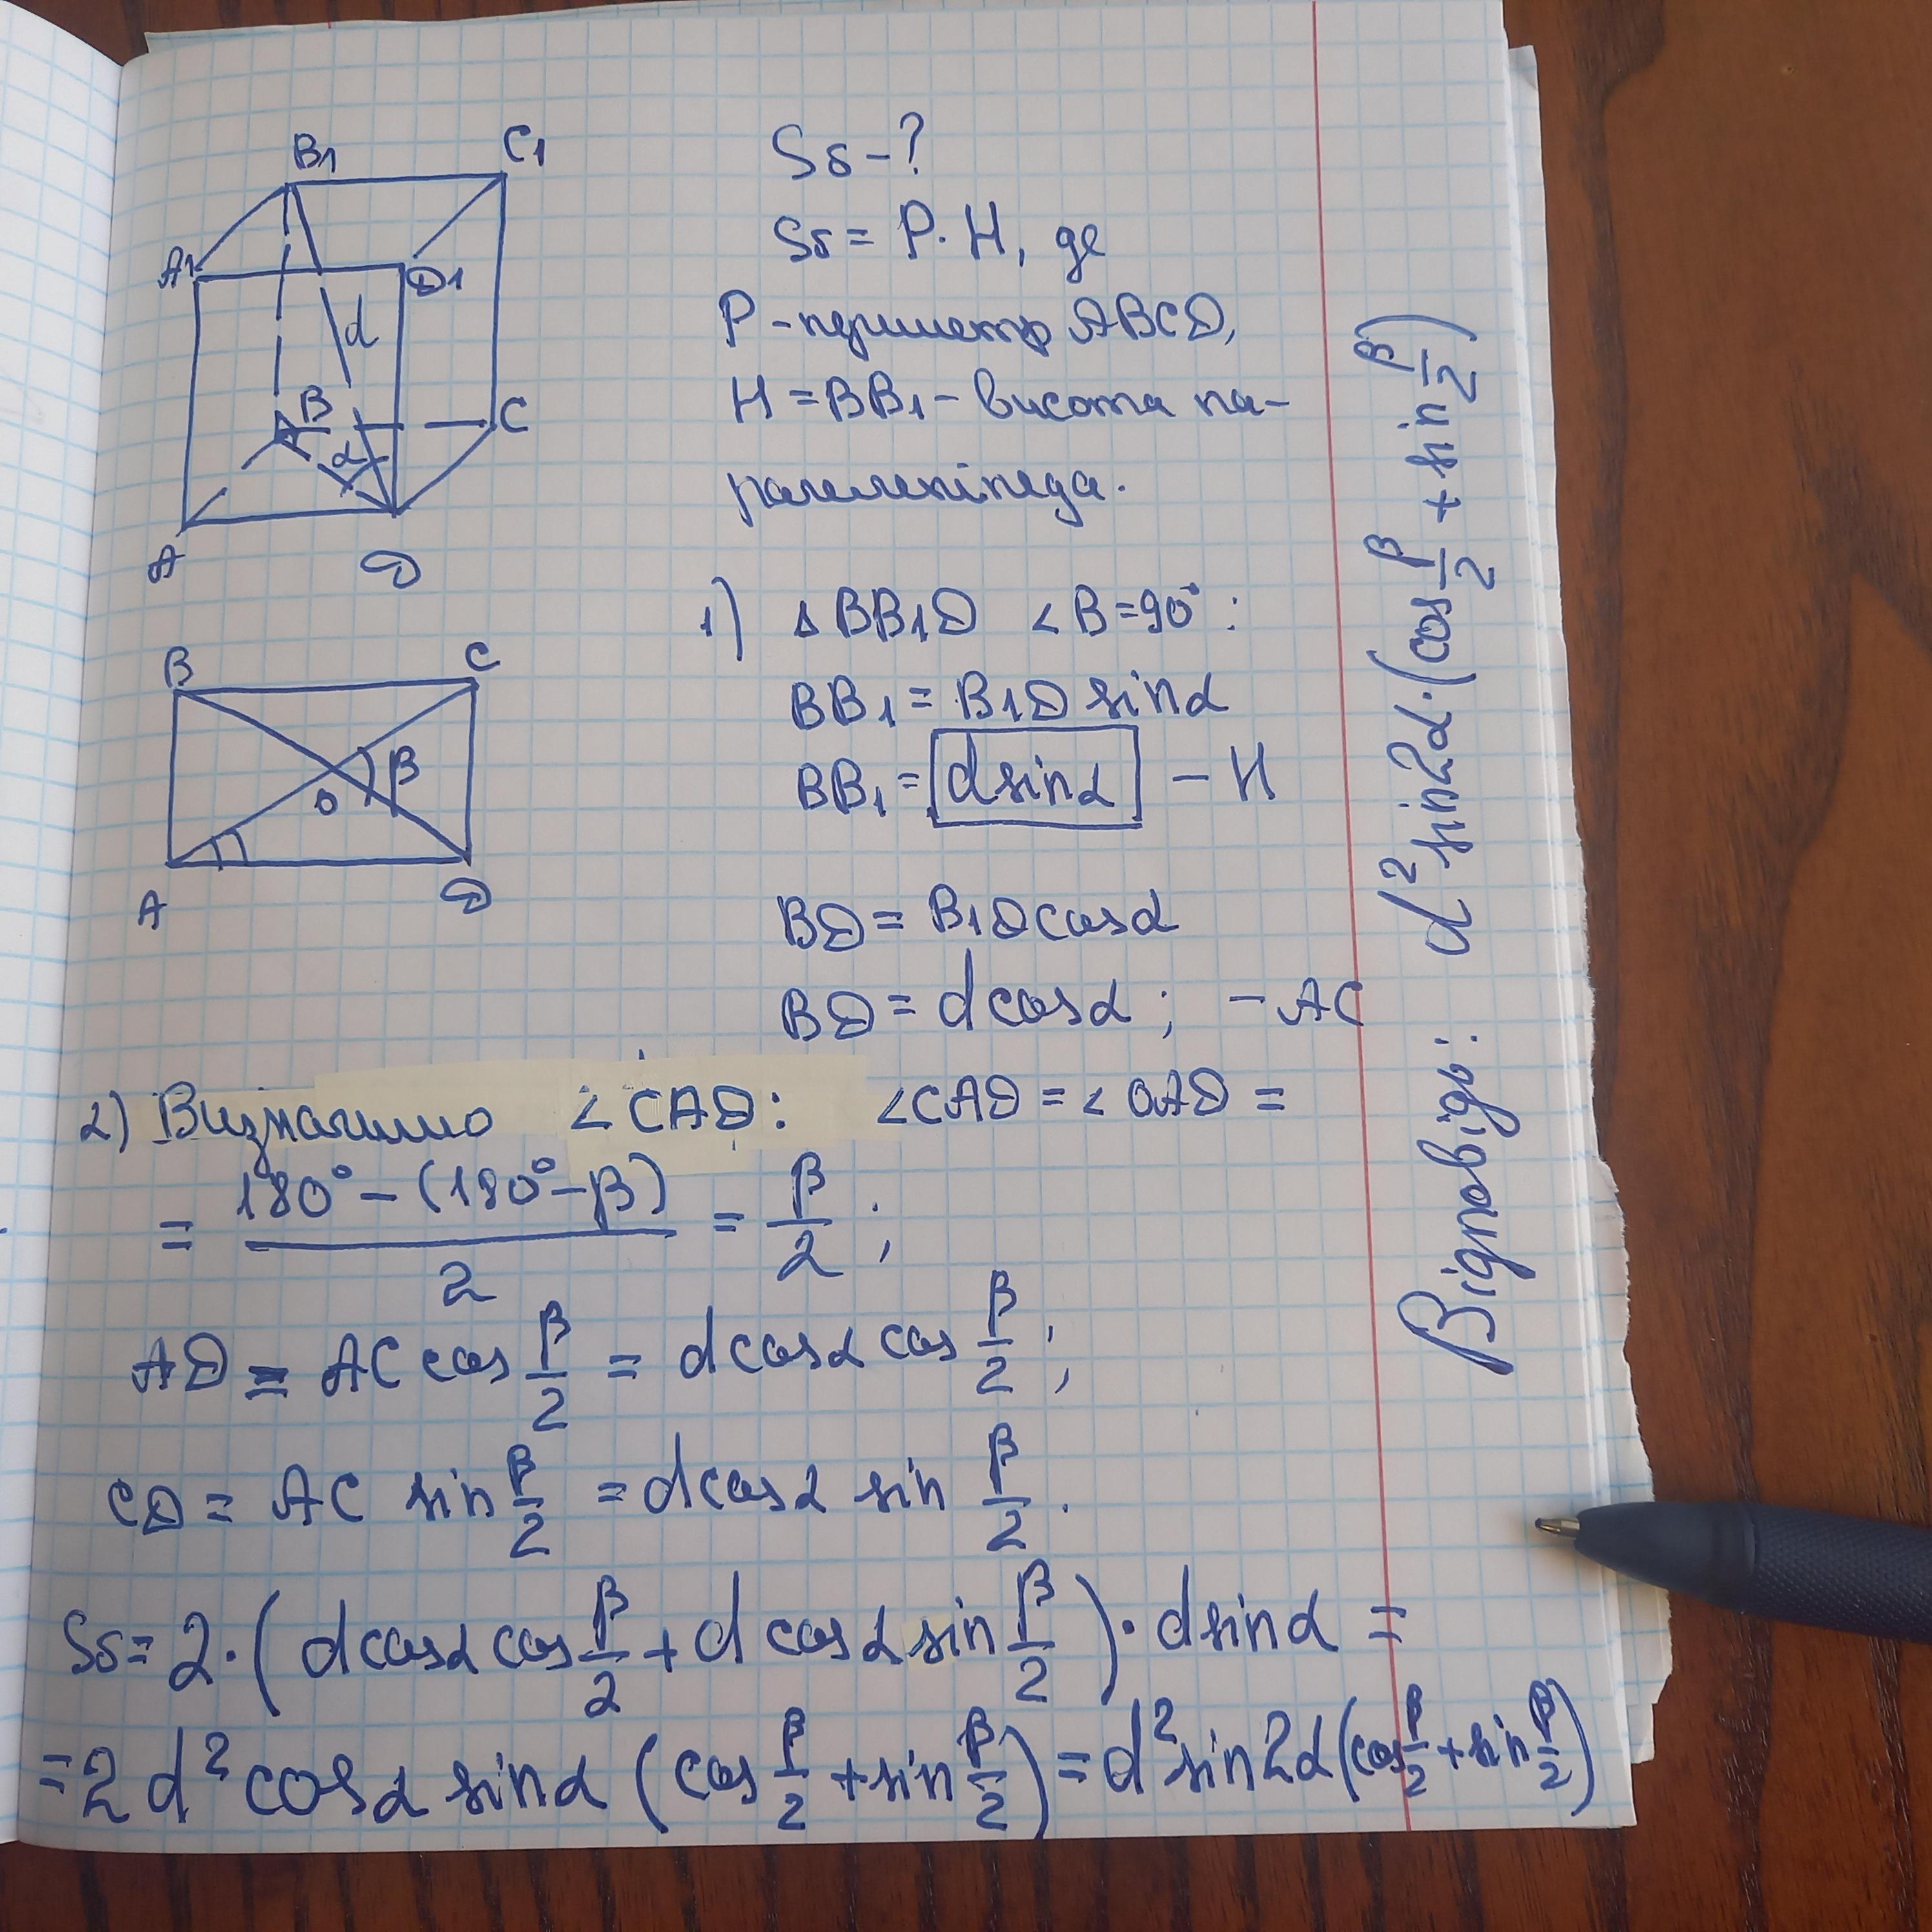 B₁
C₁
A₁
D₁
d
B
C
α
A
D
B
C
β
O
A
D
Sб - ?
Sб = P · H, де
P - периметр ABCD,
H = BB₁ - висота па-
ралелепіпеда.
1) Δ BB₁D ∠B = 90° :
BB₁ = B₁D sinα
BB₁ = d sinα - H
BD = B₁D cosα
BD = d cosα ; - AC
2) Визначимо ∠CAD: ∠CAD = ∠OAD =
= (180° - (180° - β))/2 = β/2 ;
AD = AC cos β/2 = d cosα cos β/2 ;
CD = AC sin β/2 = d cosα sin β/2 .
Sб = 2 · ( d cosα cos β/2 + d cosα sin β/2 ) · d sinα =
= 2 d² cosα sinα ( cos β/2 + sin β/2 ) = d² sin2α ( cos β/2 + sin β/2 )
Відповідь: d² sin2α · ( cos β/2 + sin β/2 )